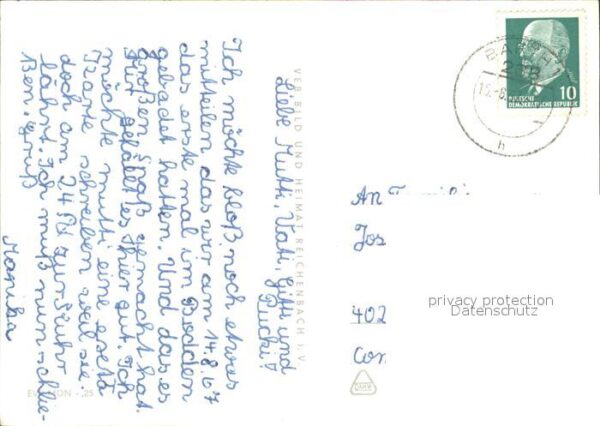 Liebe Mutti, Vati, Gitti und
Pucki!
Ich möchte bloß noch etwas
mitteilen das wir am 14.8.67
das erste mal im Bodden
gebadet hatten. Und das es
großen Spaß gemacht hat.
gefällt es hier gut. Ich
möchte mutti eine extra
Karte schreiben weil sie
doch am 24.
Ich muß nun schlie-
ßen. Gruß
Monika
VEB BILD UND HEIMAT REICHENBACH I. V.
BARTH
10
DEUTSCHE
DEMOKRATISCHE REPUBLIK
h
An
Jos
402
privacy protection
Datenschutz
25